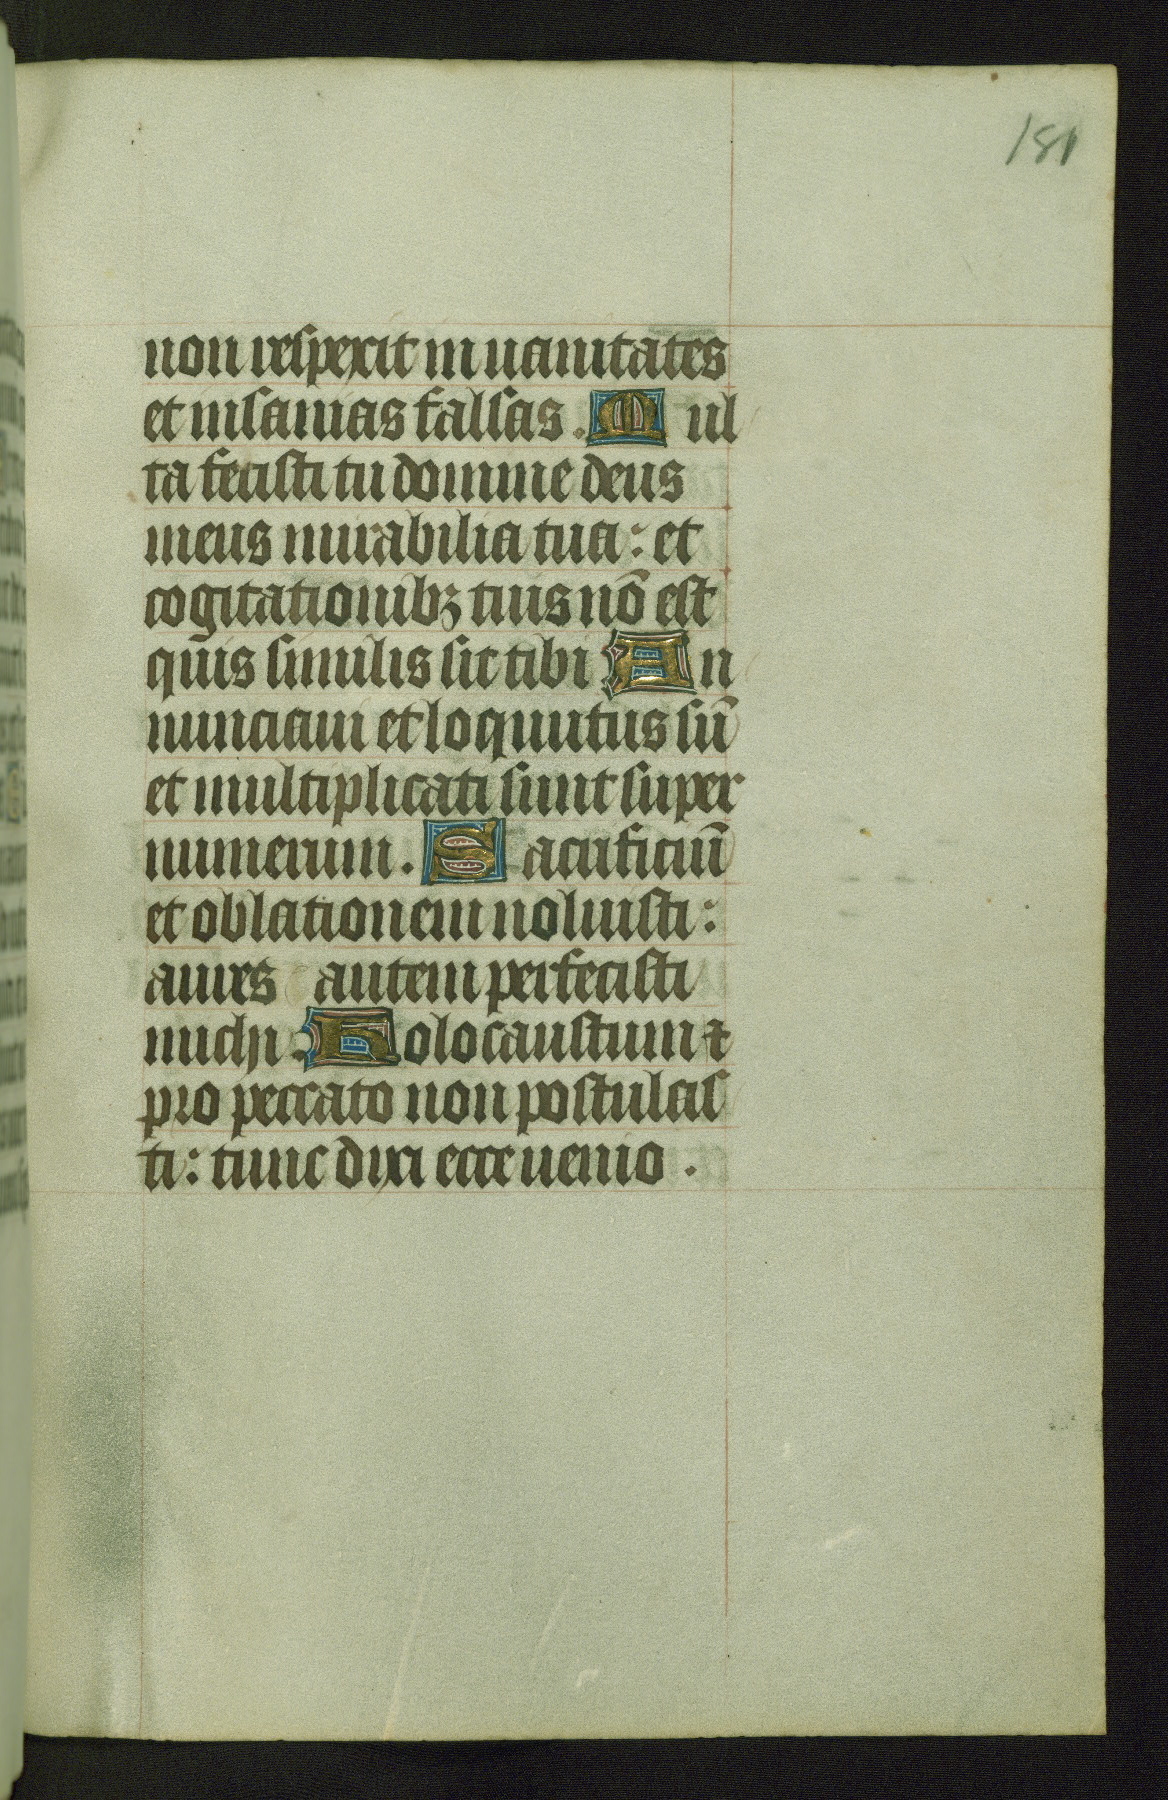 181
non respexit in uanitates
et insanias falsas. Mul
ta fecisti tu domine deus
meus mirabilia tua: et
cogitationibꝫ tuis nō est
quis similis sit tibi An
nunciaui et loquutus sū
et multiplicati sunt super
numerum. Sacrificiū
et oblationem noluisti:
aures autem perfecisti
michi. Holocaustum ⁊
pro peccato non postulas
ti: tunc dixi ecce uenio.